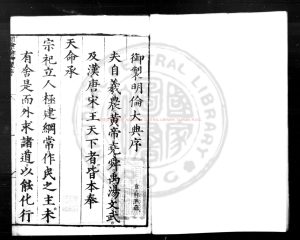 御製明倫大典序
夫自羲農黃帝堯舜禹湯文武
及漢唐宋王天下者皆本奉
天命承
宗祀立人極建綱常作民之主未
有舍是而外求諸道以能化行